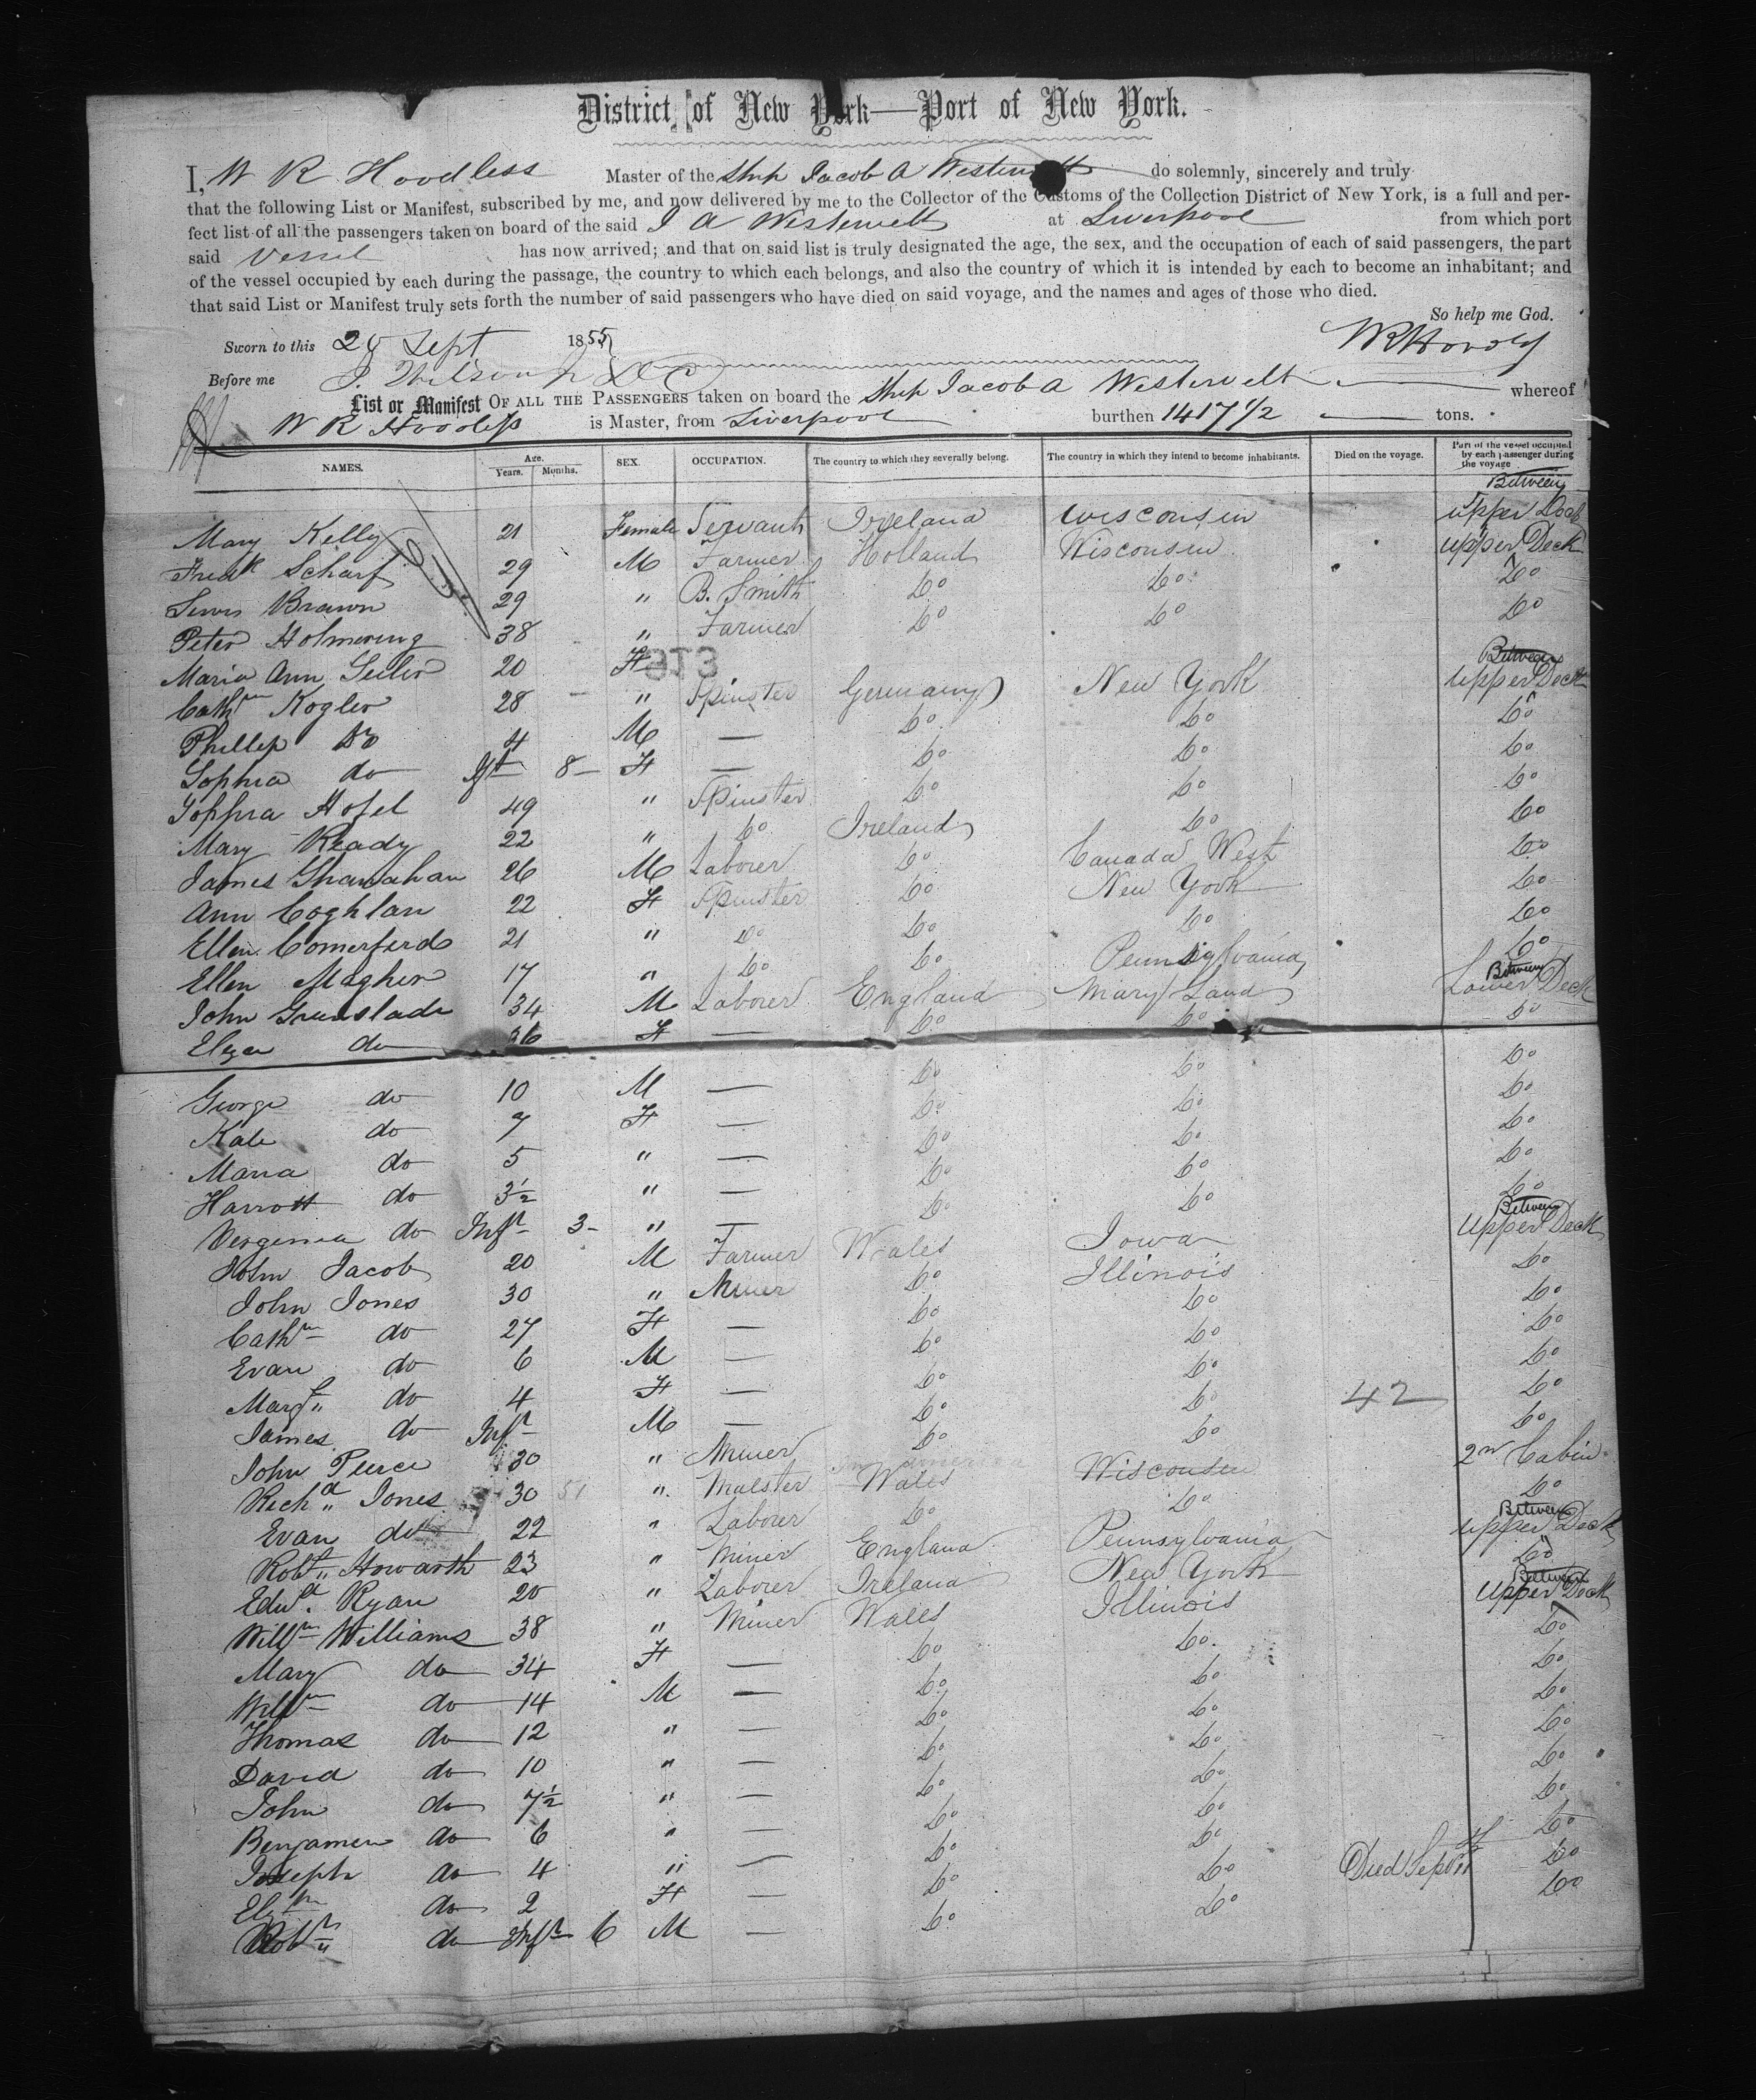 District of New York—Port of New York.
I, W R Hoodless Master of the Ship Jacob A Westervelt do solemnly, sincerely and truly
that the following List or Manifest, subscribed by me, and now delivered by me to the Collector of the Customs of the Collection District of New York, is a full and per-
fect list of all the passengers taken on board of the said J A Westervelt at Liverpool from which port
said Vessel has now arrived; and that on said list is truly designated the age, the sex, and the occupation of each of said passengers, the part
of the vessel occupied by each during the passage, the country to which each belongs, and also the country of which it is intended by each to become an inhabitant; and
that said List or Manifest truly sets forth the number of said passengers who have died on said voyage, and the names and ages of those who died.
So help me God.
Sworn to this Sept 1855
Before me
List or Manifest OF ALL THE PASSENGERS taken on board the Ship Jacob A Westervelt whereof
W R Hoodless is Master, from Liverpool burthen 1417 1/2 tons.
NAMES. Age. Years. Months. SEX. OCCUPATION. The country to which they severally belong. The country in which they intend to become inhabitants. Died on the voyage. Part of the vessel occupied by each passenger during the voyage
Between
Mary Kelly 21 Female Servant Ireland Wisconsin Upper Deck
Fredk Scharf 29 M Farmer Holland Wisconsin Upper Deck
Brawn 29 " B. Smith Do Do Do
Peter Holmering 38 " Farmer Do Do Do
Between
Maria Ann 20 F Upper Deck
Cathn Kogler 28 " Spinster Germany New York Do
Phillip Do 4 M — Do Do Do
Sophia do 8 F — Do Do Do
Sophia Hofel 49 " Spinster Do Do Do
Mary Ready 22 " Do Ireland Do Do
James Shanahan 26 M Laborer Do Canada West Do
Ann Coghlan 22 F Spinster Do New York Do
Ellen Comerford 21 " Do Do Do Do
Ellen Magher 17 " Do Do Pennsylvania Do
Between
John Grunslade 34 M Laborer England Mary Land Lower Deck
Elyza do 36 F — Do Do Do
George do 10 M — Do Do Do
Kate do 7 F — Do Do Do
Maria do 5 " — Do Do Do
Harrott do 3½ " — Do Do Do
Vergenia do Inft 3 " — Do Do Do
Between
John Jacob 20 M Farmer Wales Iowa Upper Deck
John Jones 30 " Miner Do Illinois Do
Cathn do 27 F — Do Do Do
Evan do 6 M — Do Do Do
Margt do 4 F — Do Do Do
James do Inft M — Do Do 42 Do
John Pierce 30 " Miner Do Do Do
Richd Jones 30 51 " Malster Wales Wisconsin 2nd Cabin
Evan do 22 " Laborer Do Do Do
Between
Robt Howarth 23 " Miner England Pennsylvania Upper Deck
Edwd Ryan 20 " Laborer Ireland New York Do
Between
Willm Williams 38 " Miner Wales Illinois Upper Deck
Mary do 34 F — Do Do Do
Willm do 14 M — Do Do Do
Thomas do 12 " — Do Do Do
David do 10 " — Do Do Do
John do 7½ " — Do Do Do
Benjamen do 6 " — Do Do Do
Joseph do 4 " — Do Do Do
do 2 F — Do Do Died Sept 11th Do
Robt do Inft 6 M — Do Do Do